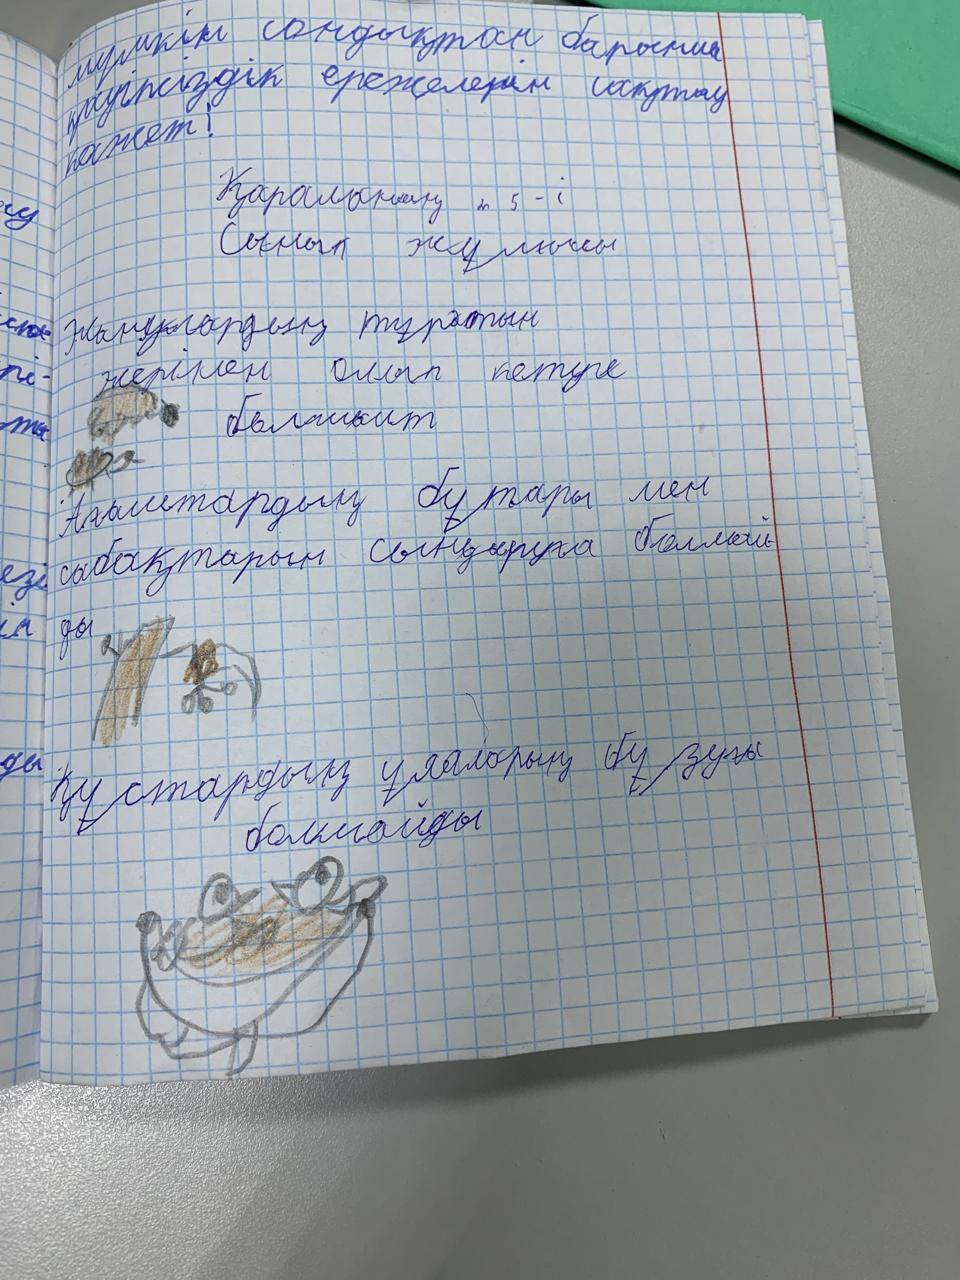 мүмкін сондықтан барынша
қауіпсіздік ережелерін сақтау
қажет!
Қарашаның 5-і
Сынып жұмысы
Жануарлардың тұратын
жерімен алып кетуге
болмайт
Ағаштардың бұтары мен
сабақтарын сындыруға болмай
ды
Құстардың ұяларың бұзуға
болмайды